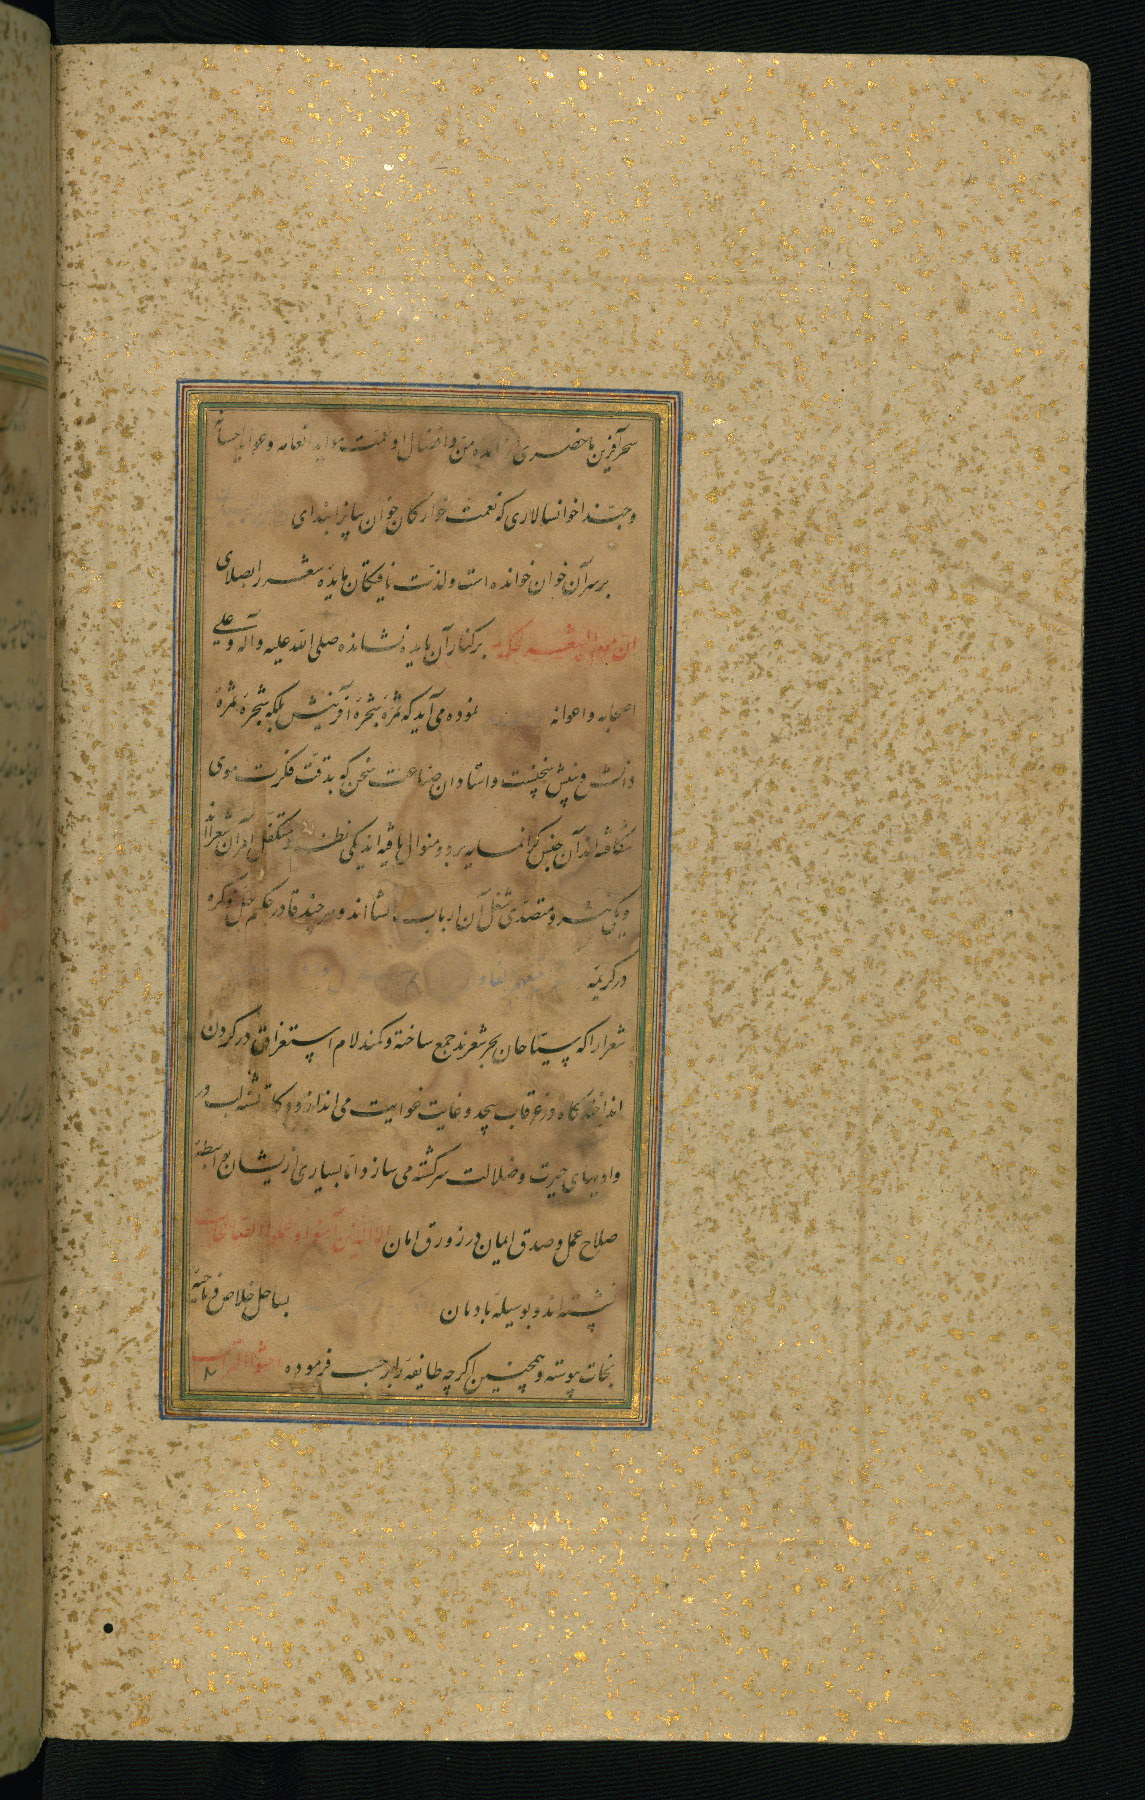 سحرآفرین ما حضری از مایده من و افضال او عمت مواید انعامه و عواید احسانه
و حبذا خوانسالاری که نعمت خوارگان خوان
بر سر آن خوان خوانده است و لذت یافتگان مایده شعر را بصلای
ان من الشعر لحکمة بر کنار آن مایده نشانده صلی الله علیه و آله و علی
اصحابه و اعوانه نموده می‌آید که ثمره شجره آفرینش بلکه شجره ثمره
دانش و بینش سخنست و استادان صناعت سخن که بدقت فکرت موی
شکافته‌اند آن جنس گرانمایه بر دو منوال بافته‌اند یکی نظم و متکفل آن شعرااند
و یکی نثر و متصدی شغل آن ارباب انشااند و هر چند قادر حکیم جل ذکره
در کریمه
شعرا را که سیاحان بحر شعرند جمع ساخته و کمند لام استغراق در گردن
انداخته گاه در غرقاب بیحد و غایت غوایت می‌اندازد و گاه تشنه لب در
وادیهای حیرت و ضلالت سرگشته می‌سازد اما بسیاری از ایشان بواسطه
صلاح عمل و صدق ایمان در زورق امان الا الذین آمنوا و عملوا الصالحات
نشسته‌اند و بوسیله بادبان بساحل خلاص و ناحیه
نجات پیوسته و همچنین اگرچه طایفه را بر حسب فرموده